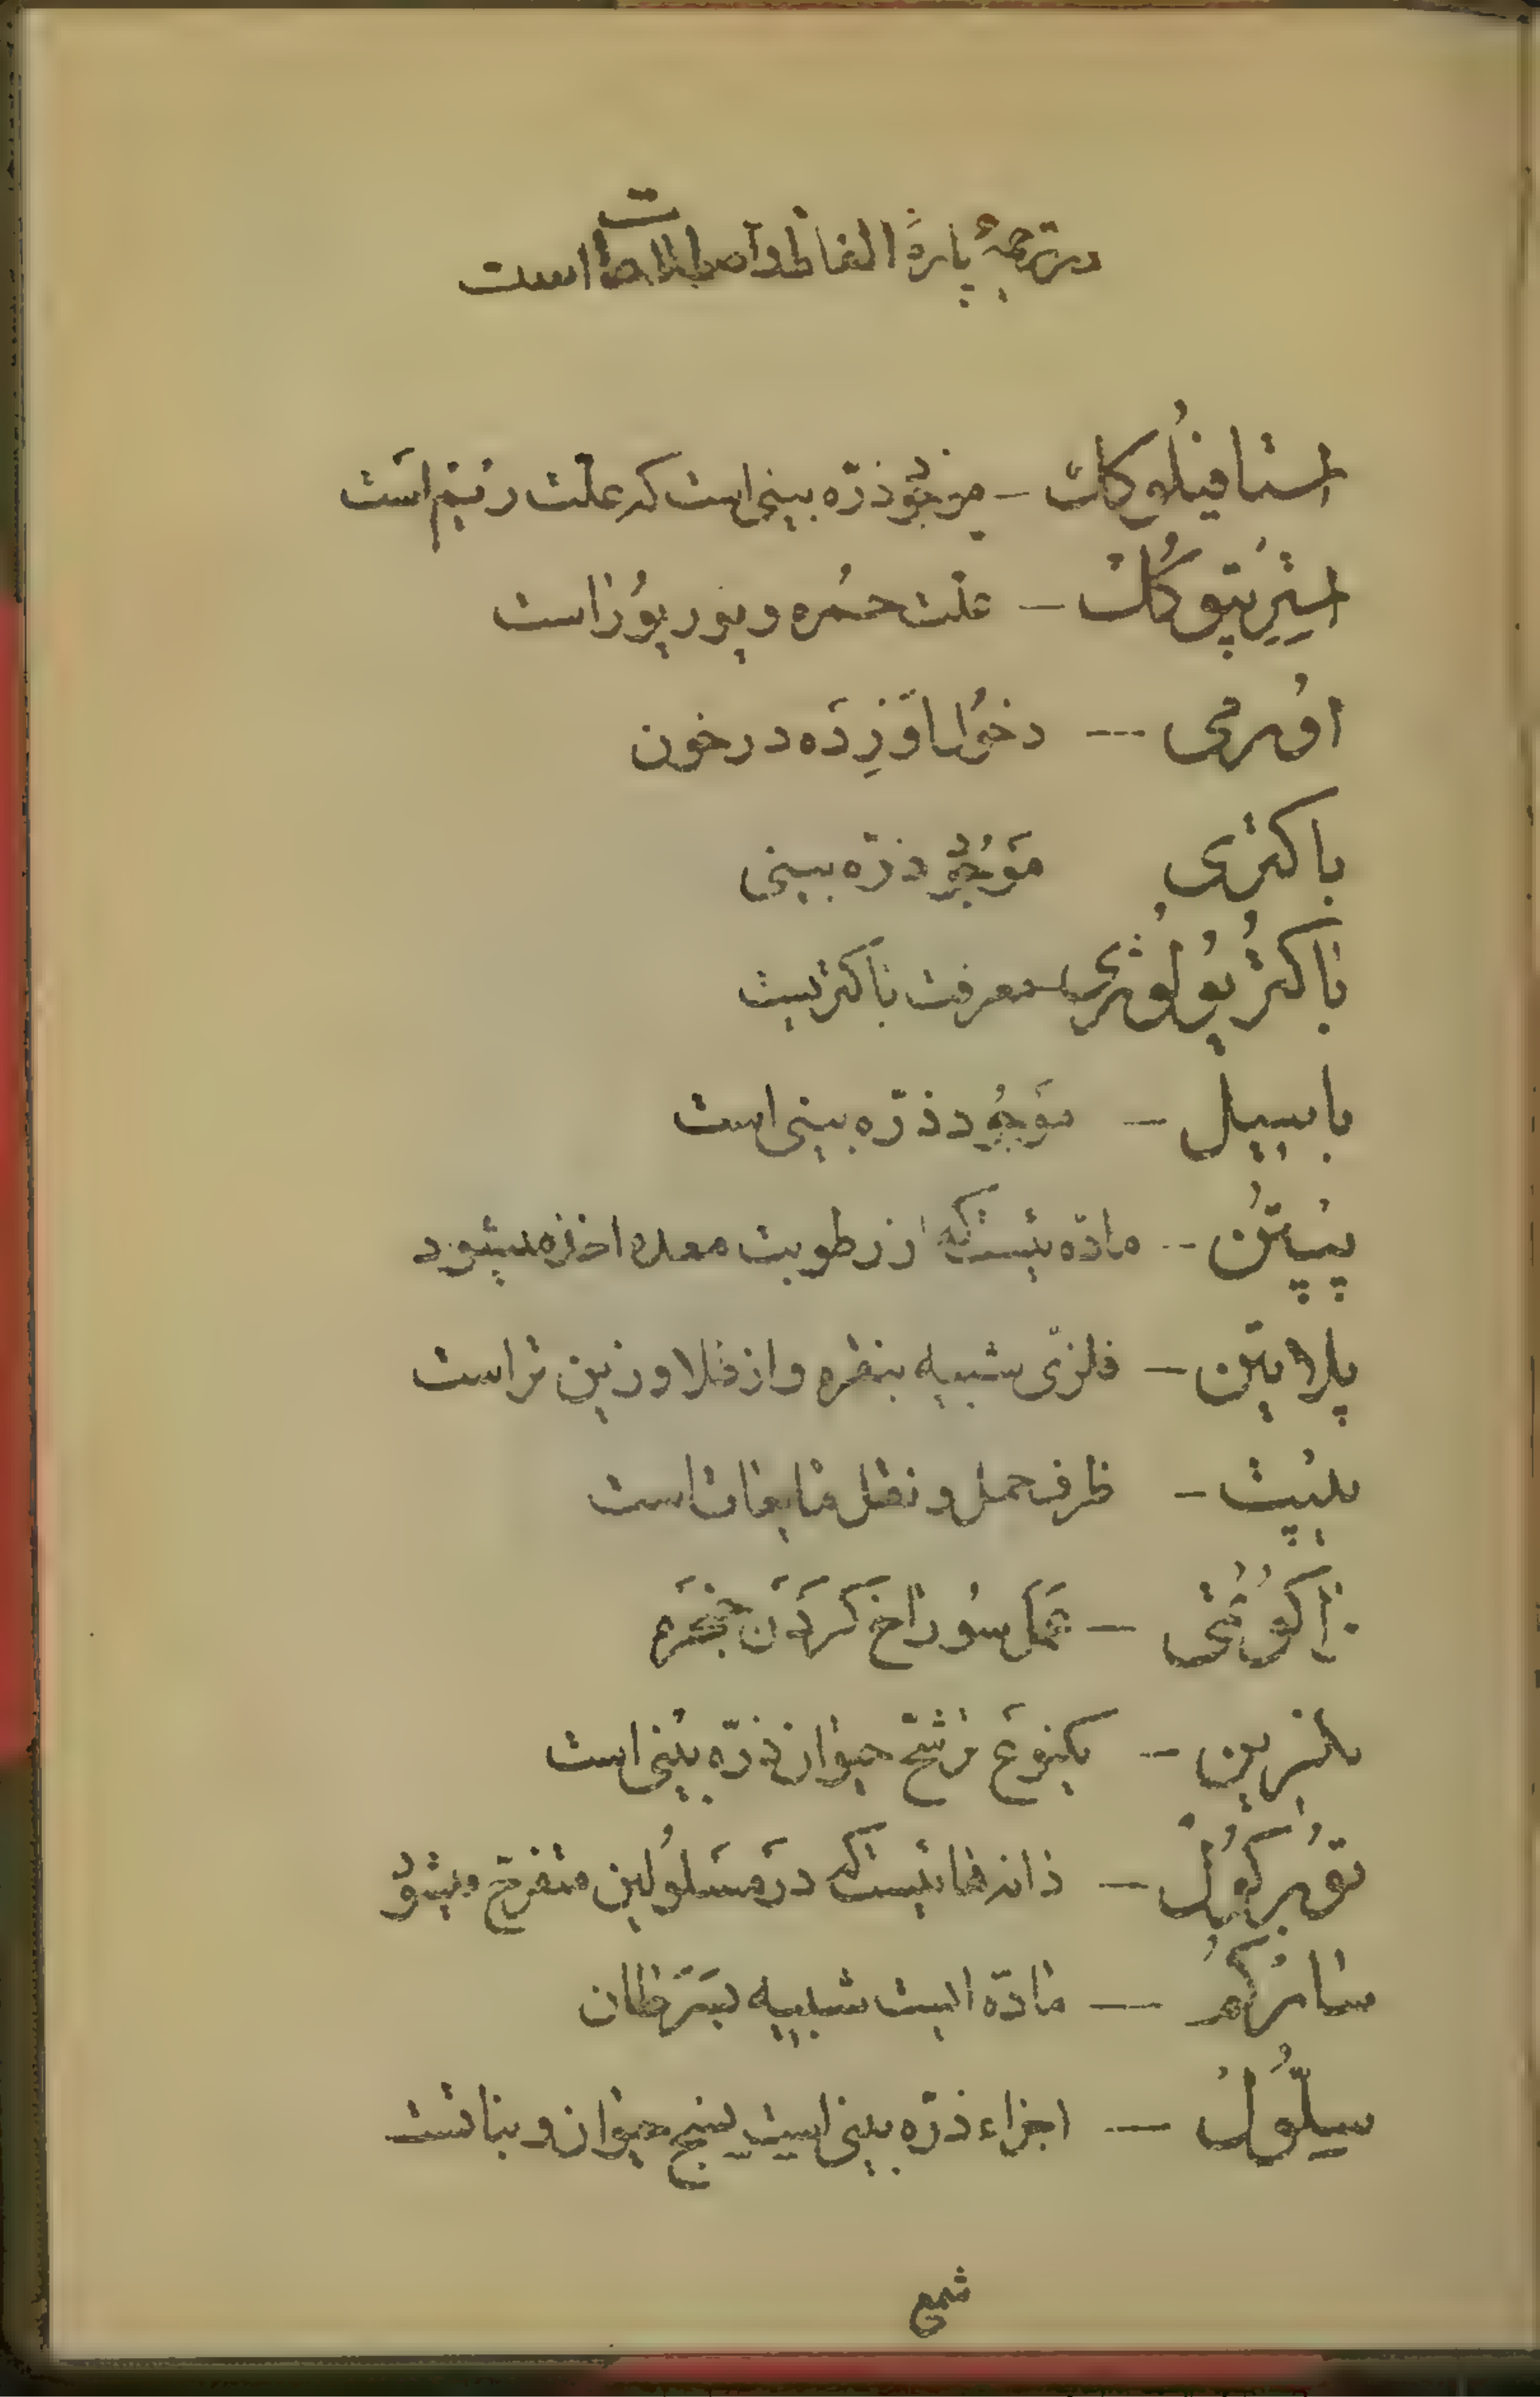 در ترجمهٔ پارهٔ الفاظ و اصطلاحات است
استافیلوکک – موجود ذرّه بینی است که علت ریم است
استرپتوکک – علت حمره و پورپوراست
اورمی – دخول اوره در خون
باکتری موجود ذرّه بینی
باکتریولوژی – معرفت باکتریست
باسیل – موجود ذرّه بینی است
پپتن – مادّه ئیست که از رطوبت معده اخذ میشود
پلاتین – فلزّی شبیه بنقره و از طلا وزین تر است
پیپت – ظرف حمل و نقل مایعات است
تراکئوتمی – عمل سوراخ کردن حنجره
توکزین – یکنوع ترشّح حیوان ذرّه بینی است
توبرکول – دانه هائیست که در مسلولین متفرّح میشود
سارکم – مادّه ایست شبیه بسرطان
سلّول – اجزاء ذرّه بینی است نسج حیوان و نباتست
شمع